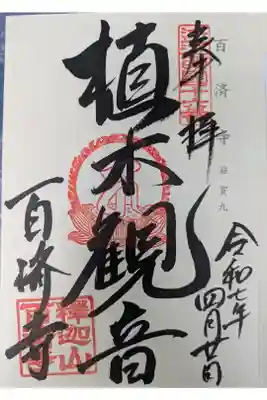 百済寺 滋賀九
奉拝
植木観音
百済寺
令和七年
四月廿日
釋迦山